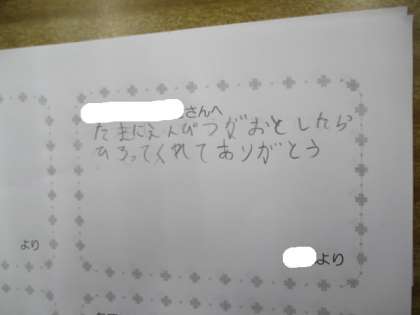 さんへ
たまにえんぴつがおとしたら
ひろってくれてありがとう
より
より